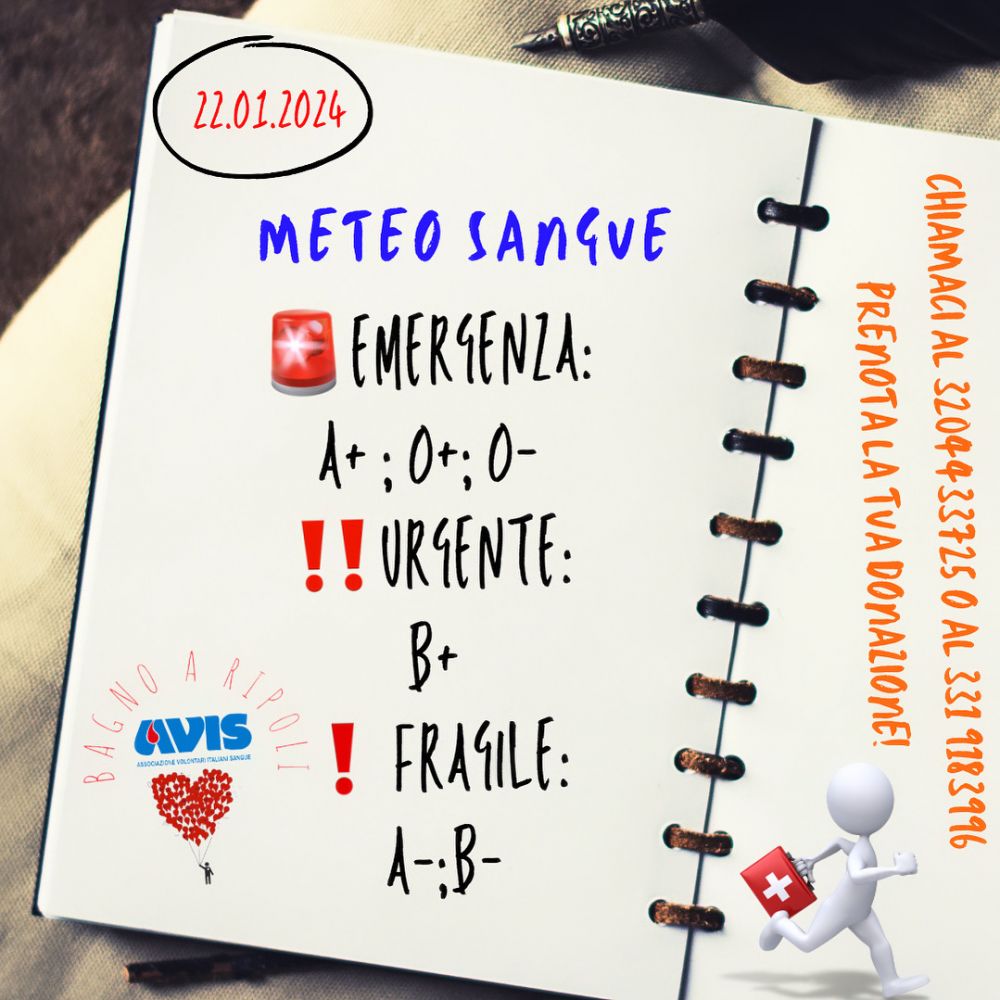 22.01.2024
METEO SANGUE
EMERGENZA:
A+ ; O+; O-
!! URGENTE:
B+
! FRAGILE:
A-;B-
BAGNO A RIPOLI
AVIS
ASSOCIAZIONE VOLONTARI ITALIANI SANGUE
CHIAMACI AL 3204433725 O AL 331 9183996
PRENOTA LA TUA DONAZIONE!